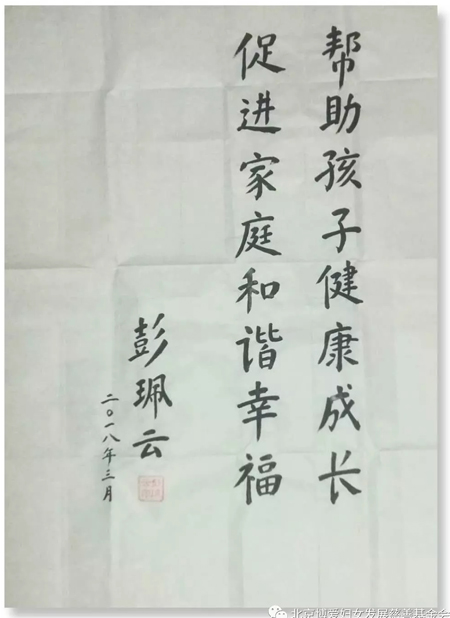 帮助孩子健康成长
促进家庭和谐幸福
彭珮云
二〇一八年三月
北京博爱妇女发展慈善基金会